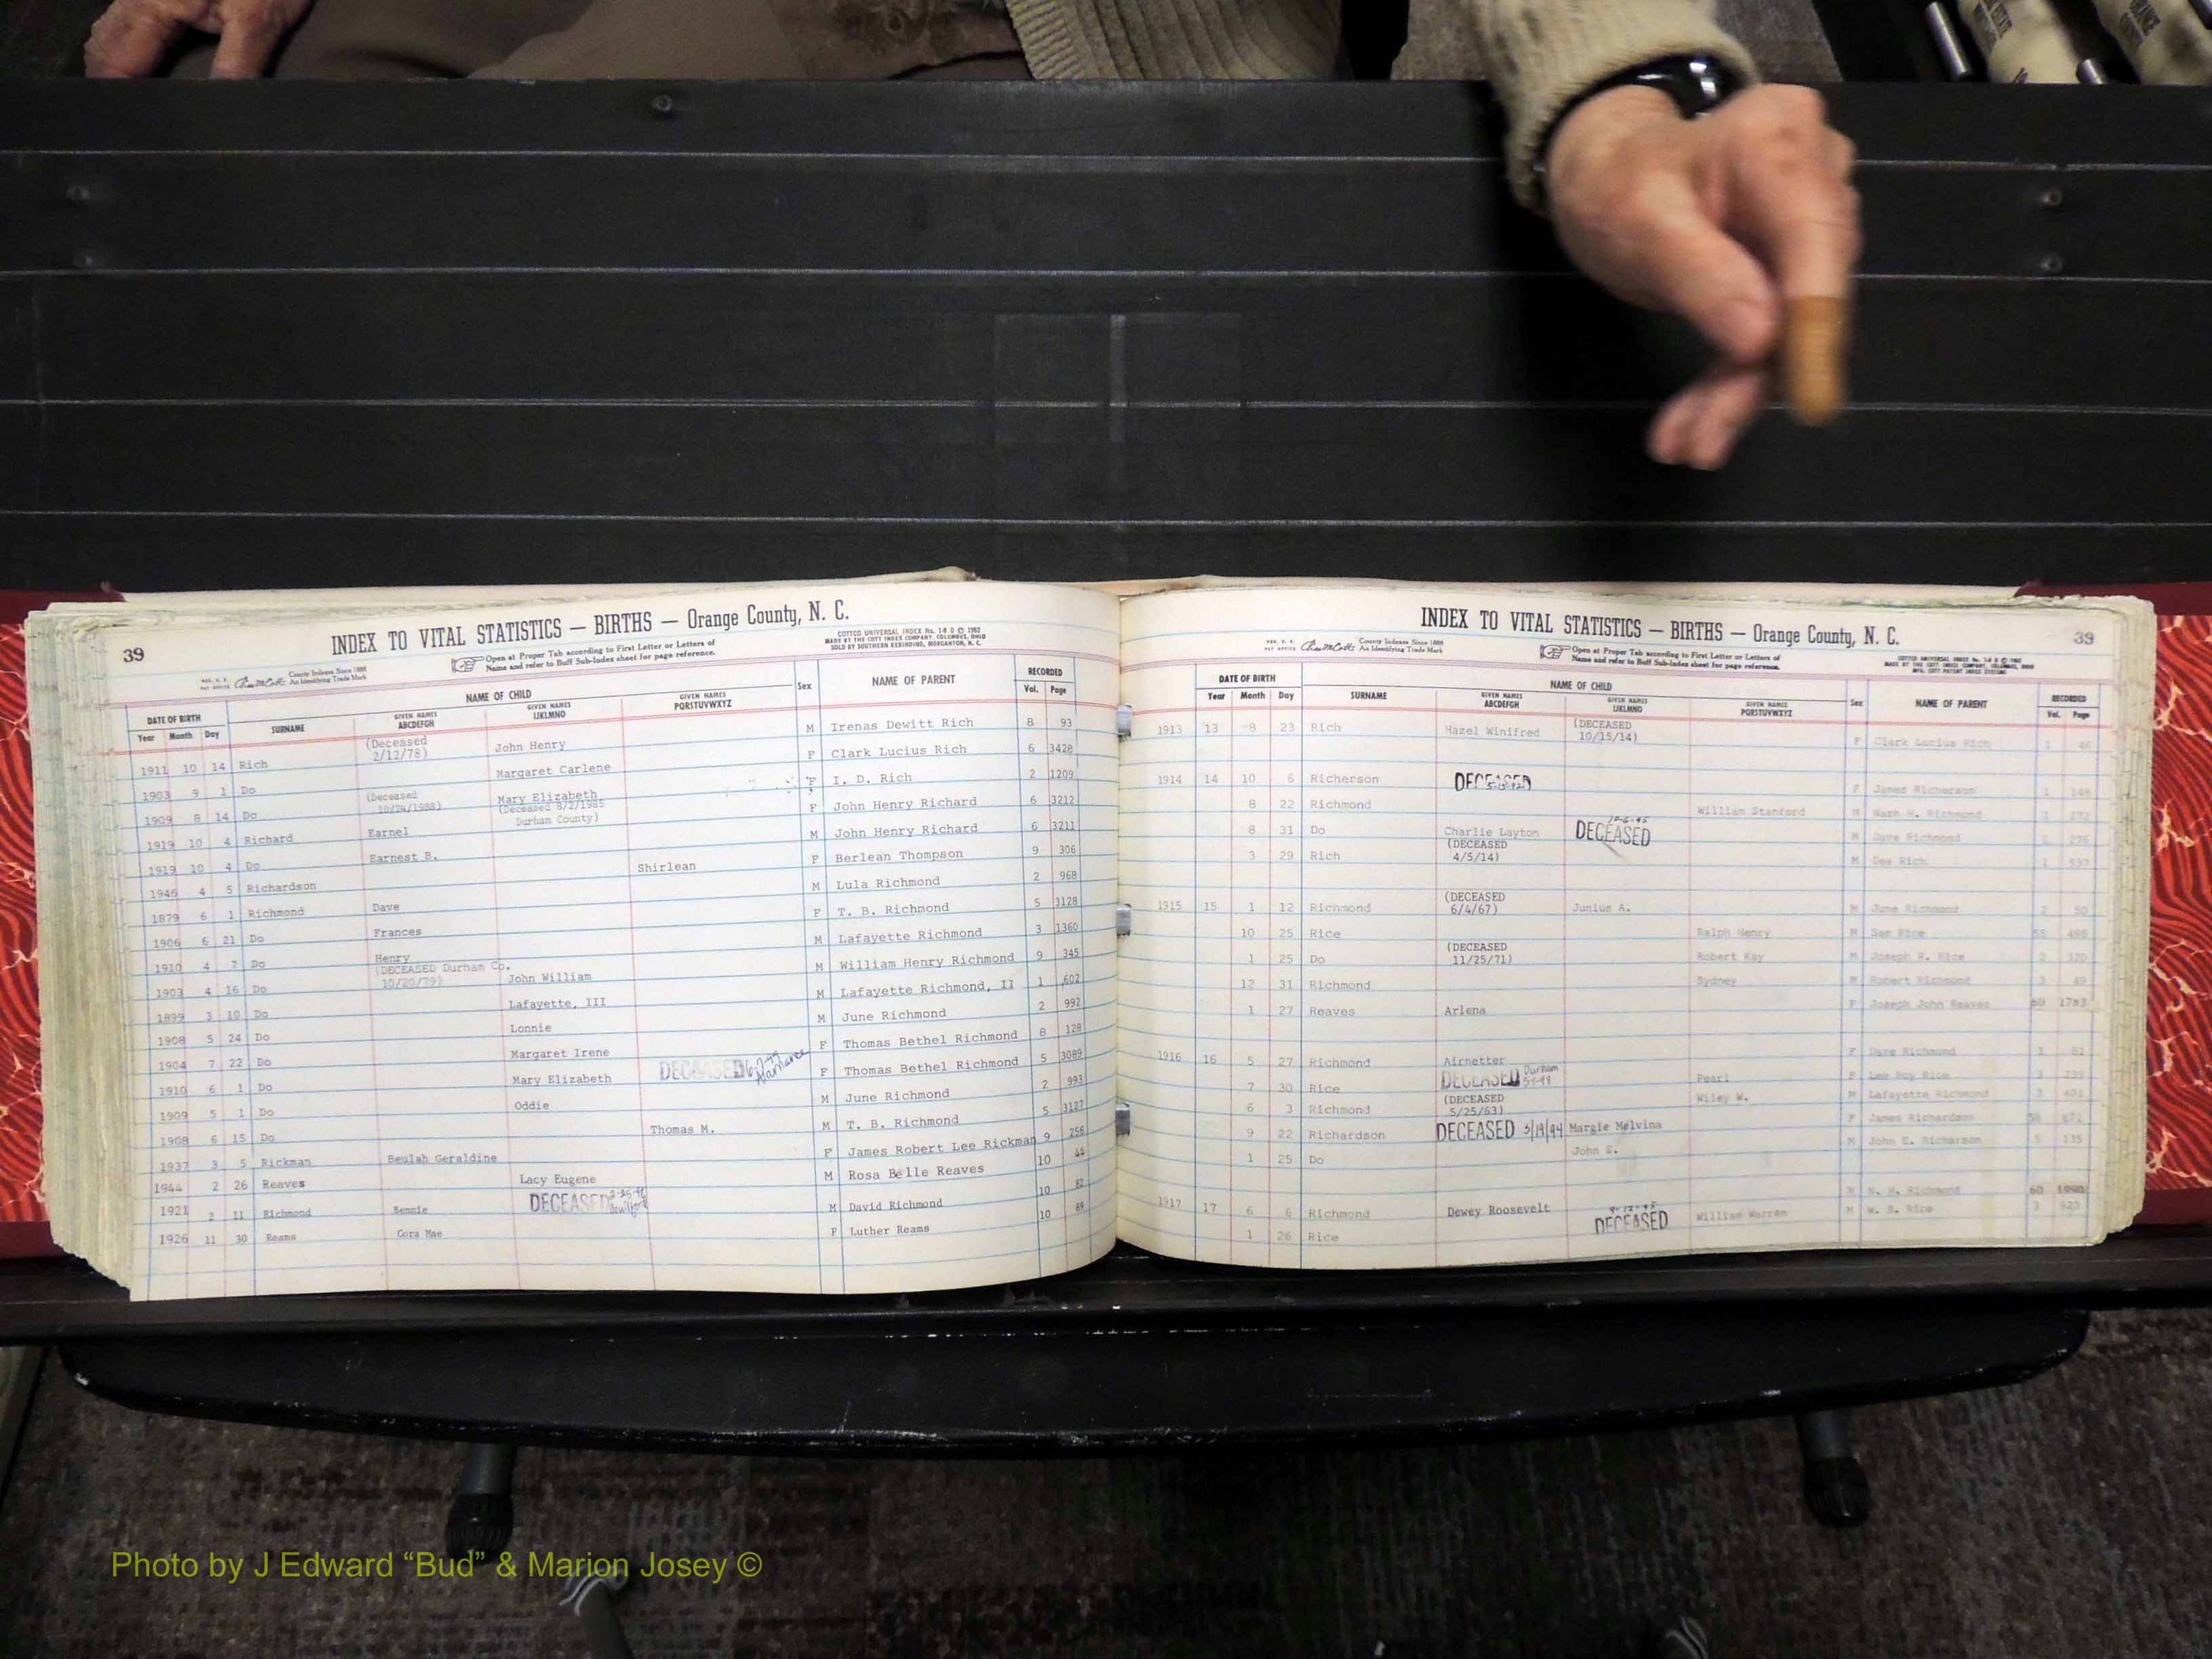 39
INDEX TO VITAL STATISTICS — BIRTHS — Orange County, N. C.
COTTCO UNIVERSAL INDEX No. 1-8 D © 1962
MADE BY THE COTT INDEX COMPANY, COLUMBUS, OHIO
SOLD BY SOUTHERN REBINDING, MORGANTON, N. C.
County Indexes Since 1888
An Identifying Trade Mark
Open at Proper Tab according to First Letter or Letters of
Name and refer to Buff Sub-Index sheet for page reference.
DATE OF BIRTH NAME OF CHILD Sex NAME OF PARENT RECORDED
Year Month Day SURNAME GIVEN NAMES ABCDEFGH GIVEN NAMES IJKLMNO GIVEN NAMES PQRSTUVWXYZ Vol. Page
1911 10 14 Rich (Deceased 2/12/78) John Henry M Irenas Dewitt Rich 8 93
1903 9 1 Do Margaret Carlene F Clark Lucius Rich 6 3428
1909 8 14 Do (Deceased 10/24/1988) Mary Elizabeth (Deceased 8/2/1985 Durham County) F I. D. Rich 2 1209
1919 10 4 Richard Earnel F John Henry Richard 6 3212
1919 10 4 Do Earnest B. M John Henry Richard 6 3211
1946 4 5 Richardson Shirlean F Berlean Thompson 9 306
1879 6 1 Richmond Dave M Lula Richmond 2 968
1906 6 21 Do Frances F T. B. Richmond 5 3128
1910 4 7 Do Henry M Lafayette Richmond 3 1360
1903 4 16 Do (DECEASED Durham Co. 10/20/79) John William M William Henry Richmond 9 345
1899 3 10 Do Lafayette, III M Lafayette Richmond, II 1 602
1908 5 24 Do Lonnie M June Richmond 2 992
1904 7 22 Do Margaret Irene F Thomas Bethel Richmond 8 128
1910 6 1 Do Mary Elizabeth DECEASED Alamance F Thomas Bethel Richmond 5 3089
1909 5 1 Do Oddie M June Richmond 2 993
1908 6 15 Do Thomas M. M T. B. Richmond 5 3127
1937 3 5 Rickman Beulah Geraldine F James Robert Lee Rickman 9 256
1944 2 26 Reaves Lacy Eugene M Rosa Belle Reaves 10 44
1921 2 11 Richmond Bennie DECEASED Guilford M David Richmond 10 82
1926 11 30 Reams Cora Mae F Luther Reams 10 89
INDEX TO VITAL STATISTICS — BIRTHS — Orange County, N. C.
39
County Indexes Since 1888
An Identifying Trade Mark
Open at Proper Tab according to First Letter or Letters of
Name and refer to Buff Sub-Index sheet for page reference.
DATE OF BIRTH NAME OF CHILD Sex NAME OF PARENT RECORDED
Year Month Day SURNAME GIVEN NAMES ABCDEFGH GIVEN NAMES IJKLMNO GIVEN NAMES PQRSTUVWXYZ Vol. Page
1913 13 8 23 Rich Hazel Winifred (DECEASED 10/15/14) F Clark Lucius Rich 1 46
1914 14 10 6 Richerson DECEASED F James Richerson 1
8 22 Richmond William Stanford M Nash H. Richmond 1
8 31 Do Charlie Layton DECEASED M Dave Richmond 1
3 29 Rich (DECEASED 4/5/14) M Dee Rich 1
1915 15 1 12 Richmond (DECEASED 6/4/67) Junius A. M June Richmond 2 50
10 25 Rice Ralph Henry M Sam Rice
1 25 Do (DECEASED 11/25/71) Robert Kay M Joseph R. Rice 2
12 31 Richmond Sydney M Robert Richmond 3 49
1 27 Reaves Arlena F Joseph John Reaves 60 1783
1916 16 5 27 Richmond Airnetter F Dave Richmond 3
7 30 Rice DECEASED Durham Pearl F Lee Roy Rice 3
6 3 Richmond (DECEASED 5/25/63) Wiley W. M Lafayette Richmond 3
9 22 Richardson DECEASED 3/19/94 Margie Melvina F James Richardson
1 25 Do John E. M John E. Richarson 5 135
1917 17 6 6 Richmond Dewey Roosevelt M N. H. Richmond 60
1 26 Rice DECEASED William Warren M W. B. Rice 3
Photo by J Edward “Bud” & Marion Josey ©